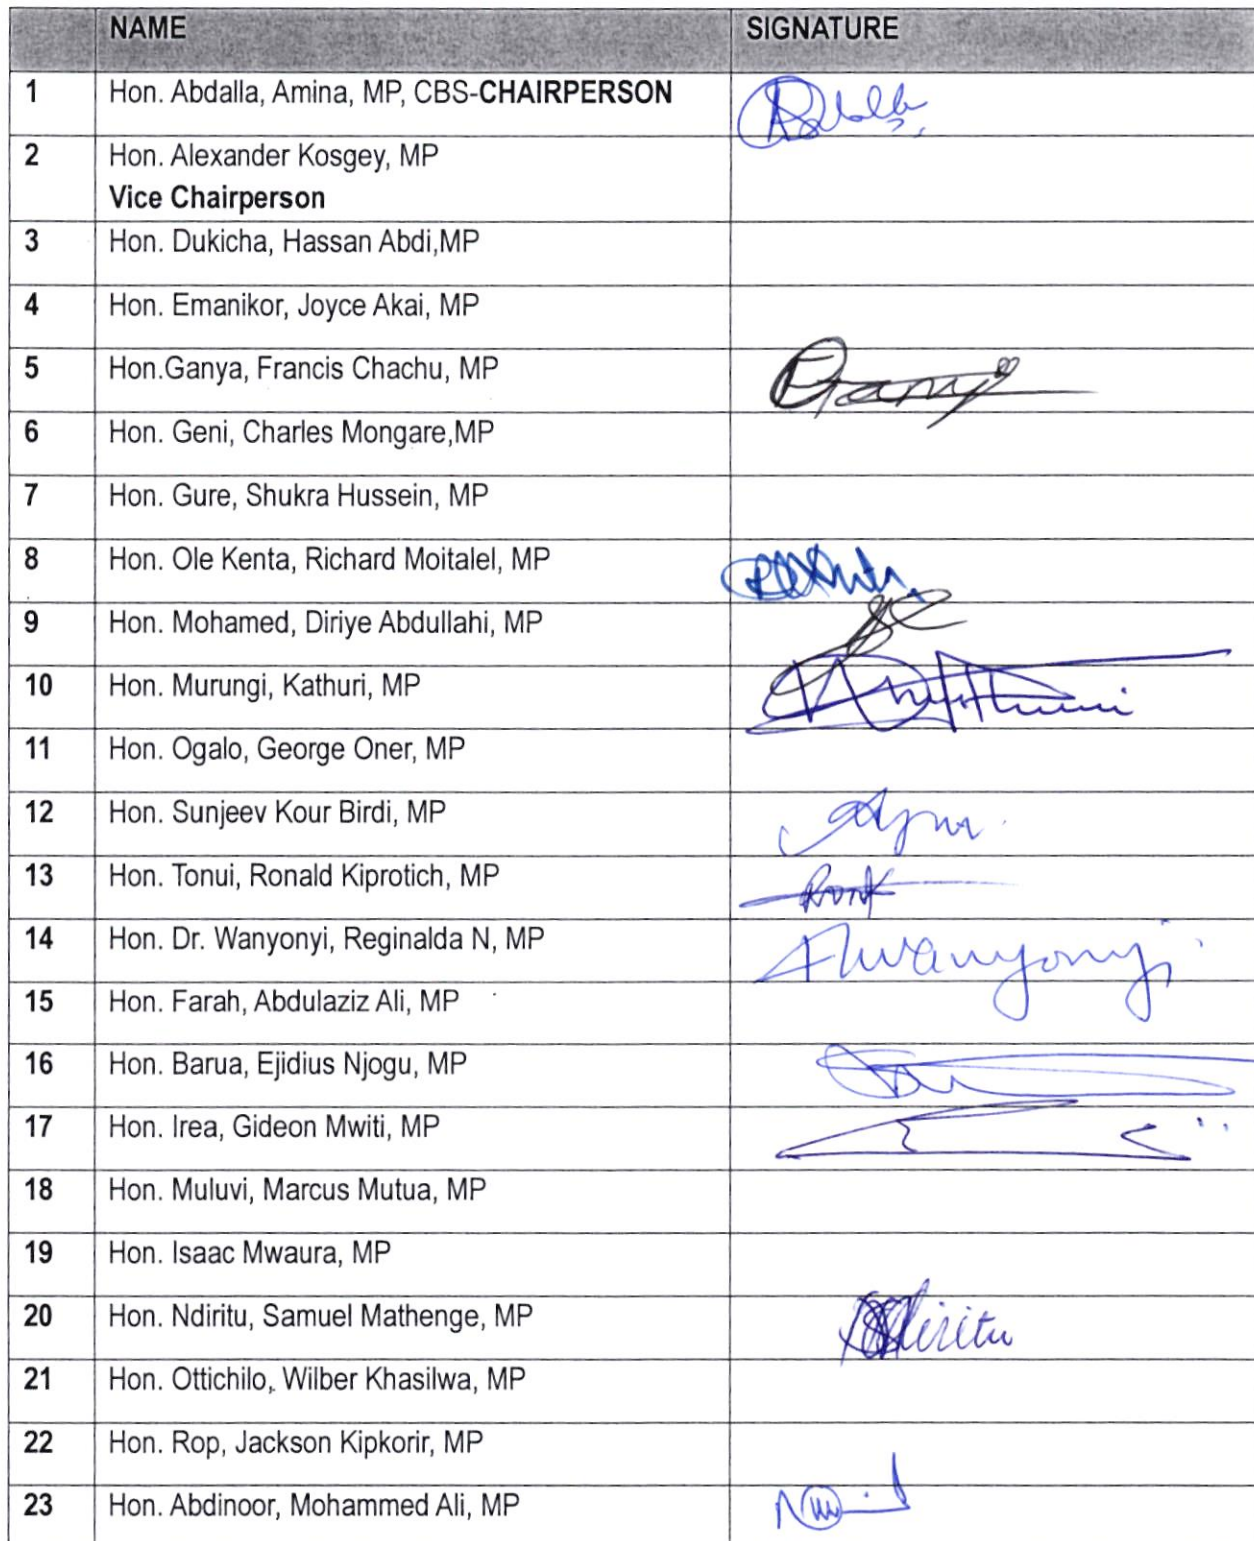 NAME SIGNATURE
1 Hon. Abdalla, Amina, MP, CBS-CHAIRPERSON
2 Hon. Alexander Kosgey, MP
Vice Chairperson
3 Hon. Dukicha, Hassan Abdi,MP
4 Hon. Emanikor, Joyce Akai, MP
5 Hon.Ganya, Francis Chachu, MP
6 Hon. Geni, Charles Mongare,MP
7 Hon. Gure, Shukra Hussein, MP
8 Hon. Ole Kenta, Richard Moitalel, MP
9 Hon. Mohamed, Diriye Abdullahi, MP
10 Hon. Murungi, Kathuri, MP
11 Hon. Ogalo, George Oner, MP
12 Hon. Sunjeev Kour Birdi, MP
13 Hon. Tonui, Ronald Kiprotich, MP
14 Hon. Dr. Wanyonyi, Reginalda N, MP
15 Hon. Farah, Abdulaziz Ali, MP
16 Hon. Barua, Ejidius Njogu, MP
17 Hon. Irea, Gideon Mwiti, MP
18 Hon. Muluvi, Marcus Mutua, MP
19 Hon. Isaac Mwaura, MP
20 Hon. Ndiritu, Samuel Mathenge, MP
21 Hon. Ottichilo, Wilber Khasilwa, MP
22 Hon. Rop, Jackson Kipkorir, MP
23 Hon. Abdinoor, Mohammed Ali, MP